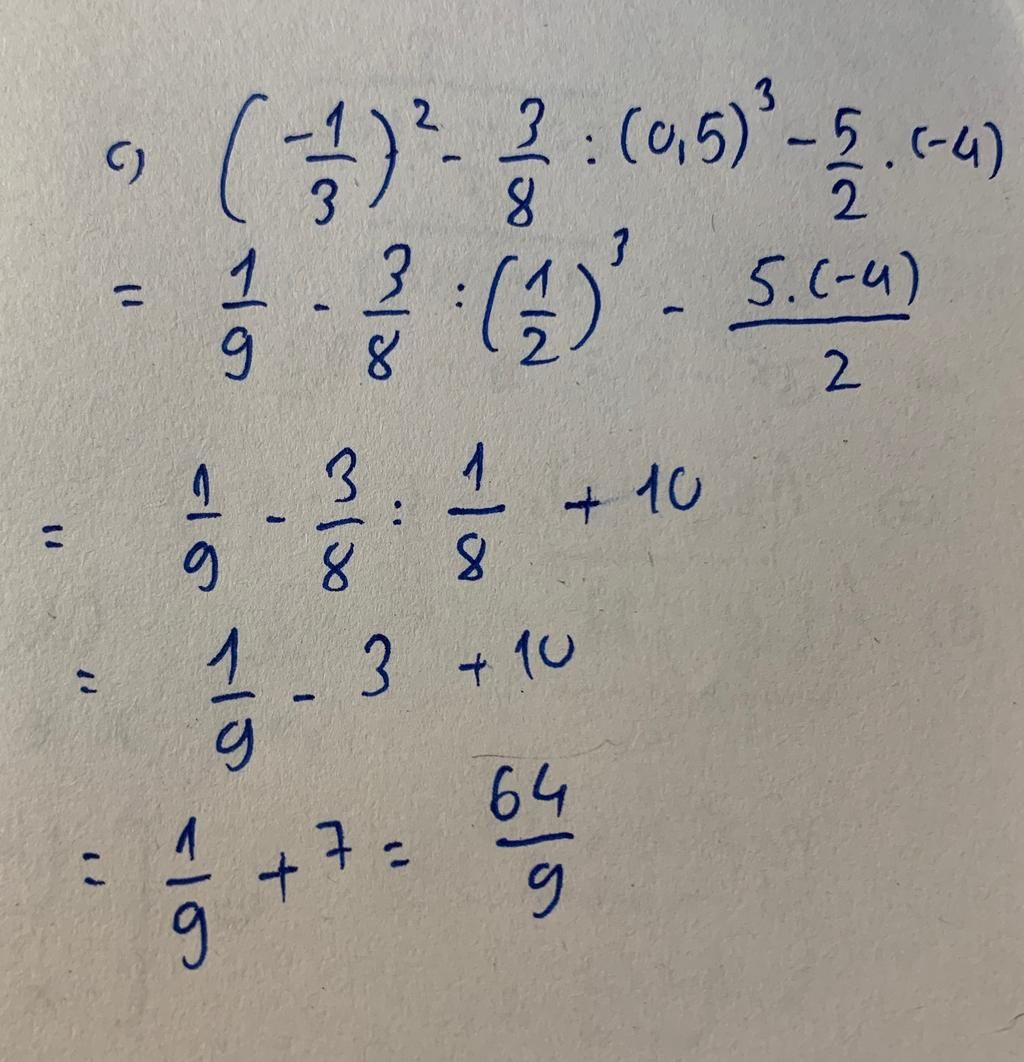 c) (-1/3)² - 3/8 : (0,5)³ - 5/2 . (-4)
= 1/9 - 3/8 : (1/2)³ - 5.(-4)/2
= 1/9 - 3/8 : 1/8 + 10
= 1/9 - 3 + 10
= 1/9 + 7 = 64/9